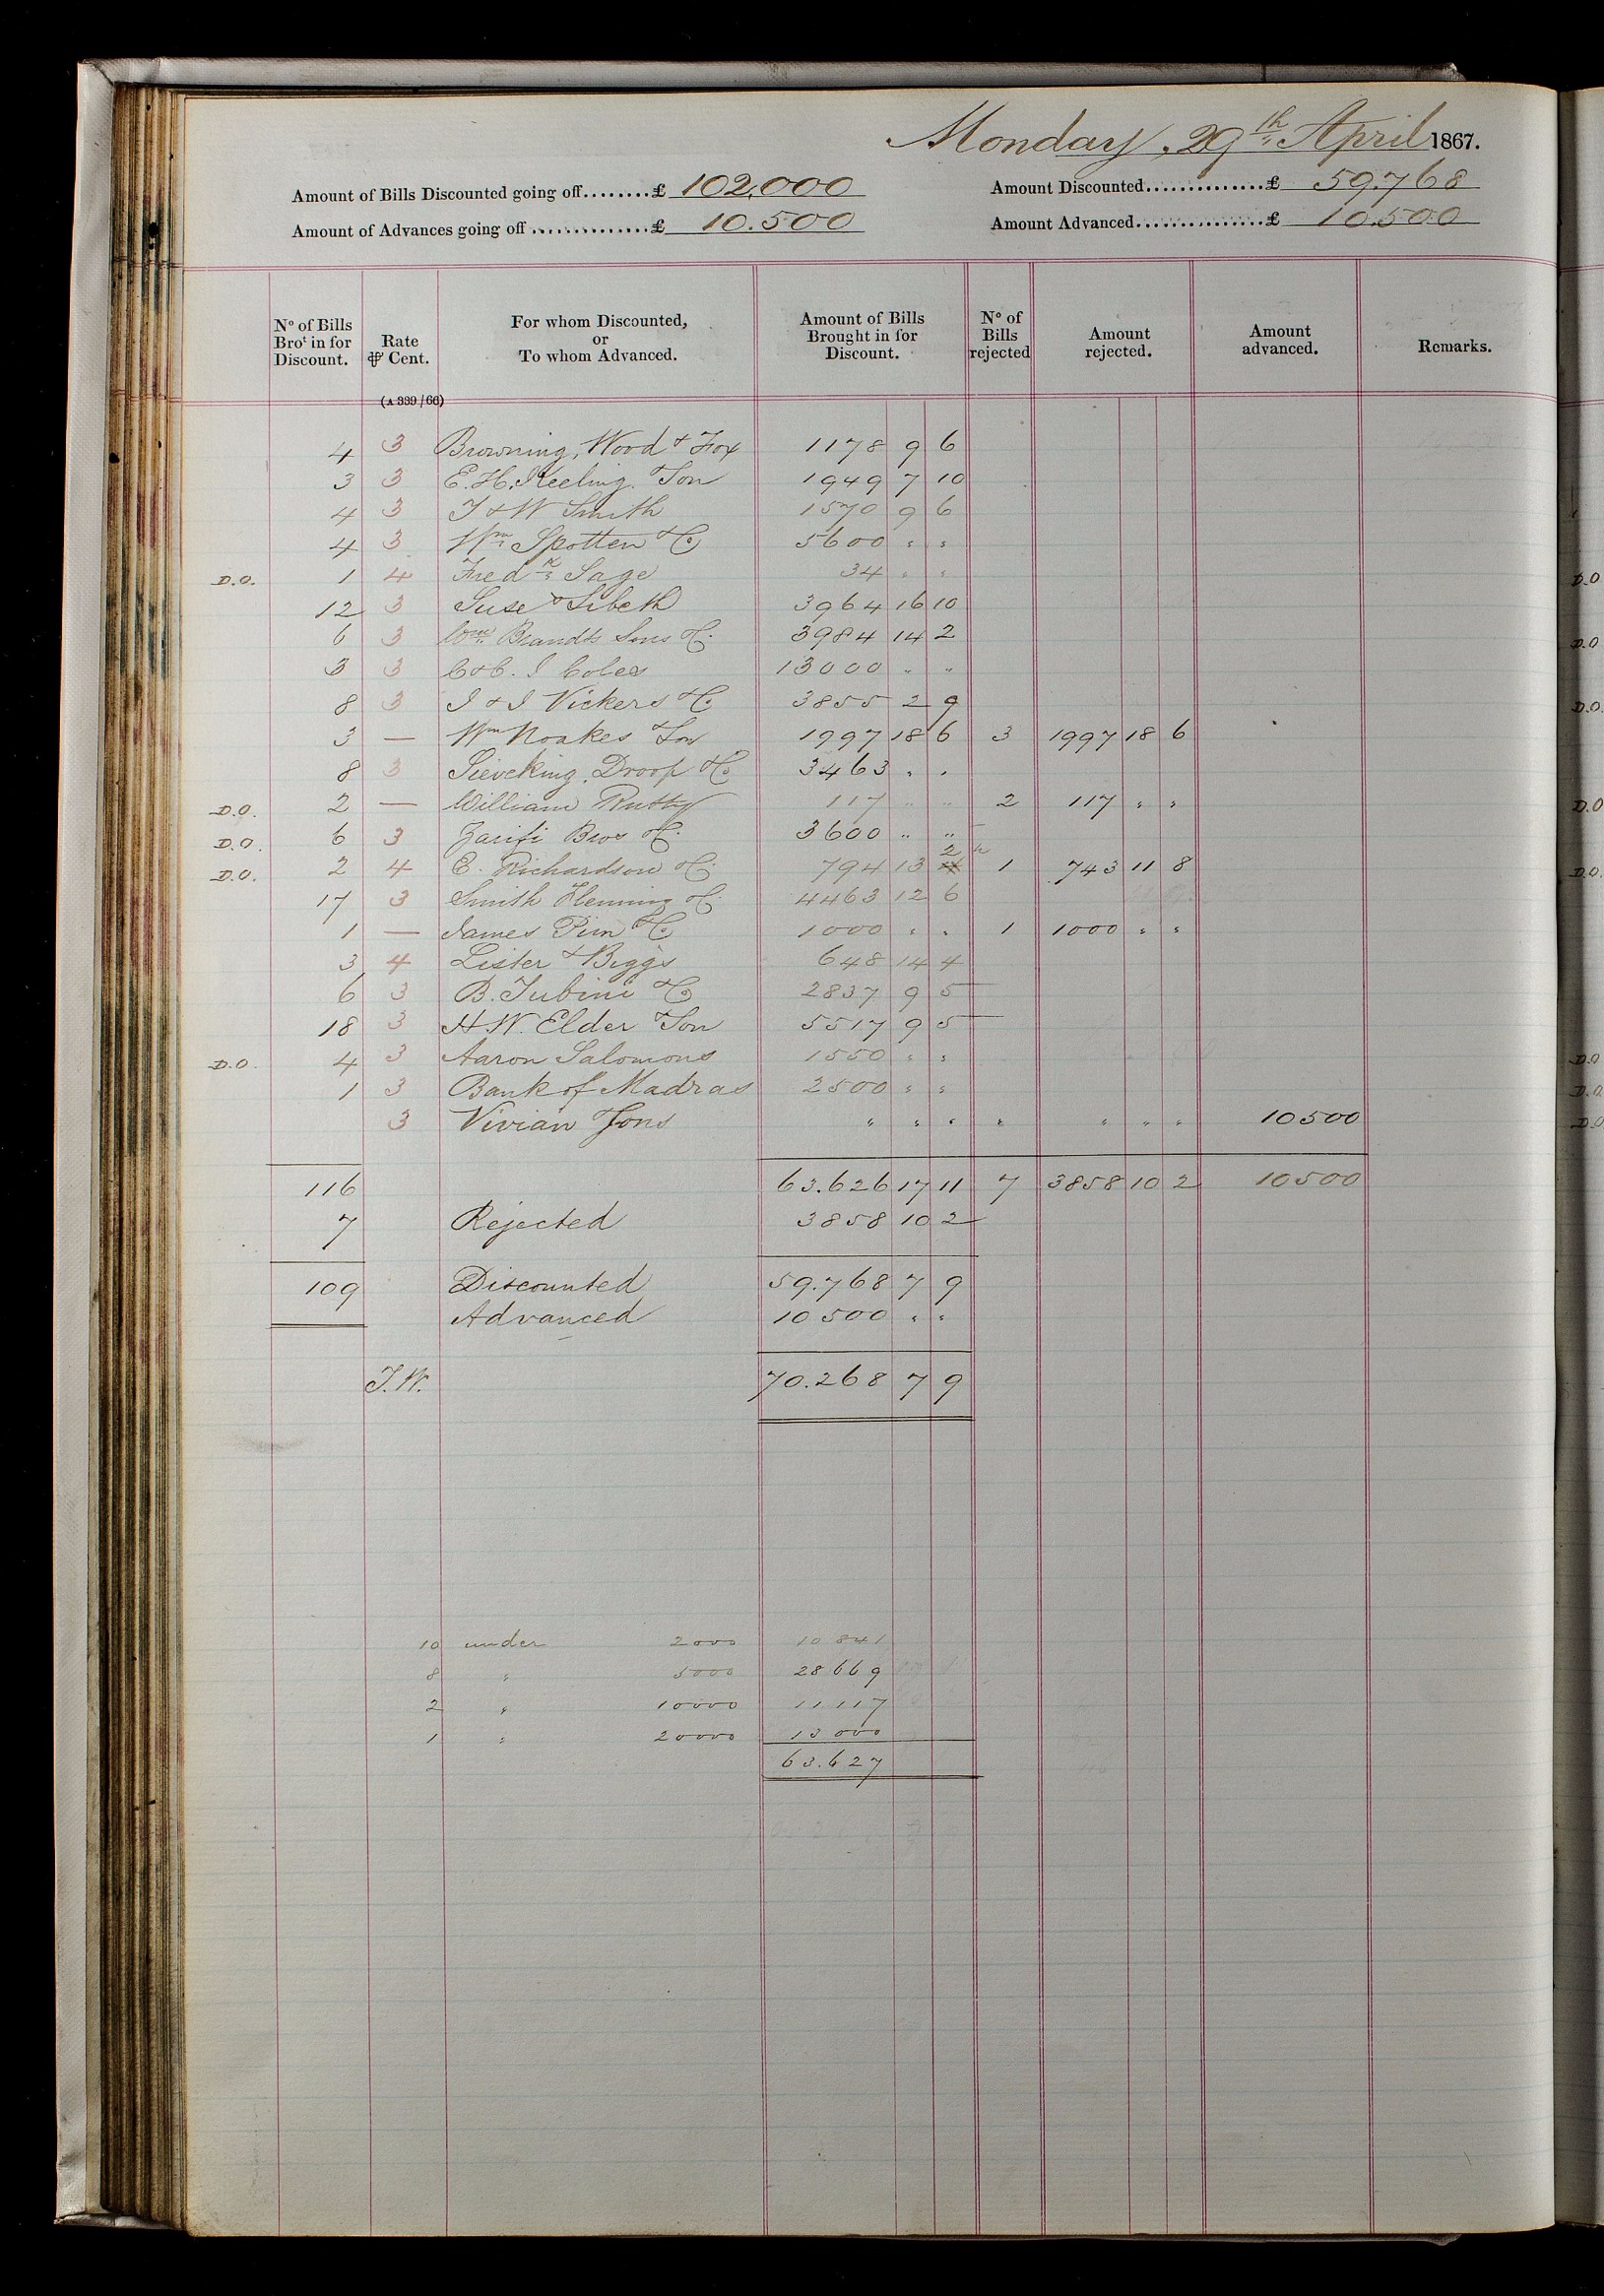 Monday, 29th April 1867.
Amount of Bills Discounted going off........£ 102,000 Amount Discounted...............£ 59.768
Amount of Advances going off ..............£ 10.500 Amount Advanced................£ 10.500
No of Bills Brot in for Discount. Rate ⅌ Cent. For whom Discounted, or To whom Advanced. Amount of Bills Brought in for Discount. No of Bills rejected Amount rejected. Amount advanced. Remarks.
(A 339/66)
4 3 Browning, Wood & Fox 1178 9 6
3 3 E. H. Keeling & Son 1949 7 10
4 3 T & W Smith 1570 9 6
4 3 Wm Spotten & Co 5600 " "
D.O. 1 4 Fredk Sage 34 " "
12 3 Suse & Sibeth 3964 16 10
6 3 Wm Brandts Sons & Co 3984 14 2
3 3 C & C. J Coles 13000 " "
8 3 I & I Vickers & Co 3855 2 9
3 — Wm Noakes & Son 1997 18 6 3 1997 18 6
8 3 Sieveking, Droop & Co 3463 " "
D.O. 2 — William Rutty 117 " " 2 117 " "
D.O. 6 3 Zarifi Bros & Co 3600 " "
D.O. 2 4 E. Richardson & Co 794 13 2 1 743 11 8
17 3 Smith Fleming & Co 4463 12 6
1 — James Pim & Co 1000 " " 1 1000 " "
3 4 Lister & Biggs 648 14 4
6 3 B. Tubini & Co 2837 9 5
18 3 H W. Elder & Son 5517 9 5
D.O. 4 3 Aaron Salomons 1550 " "
1 3 Bank of Madras 2500 " "
3 Vivian & Sons " " " " " " " 10500
116 63.626 17 11 7 3858 10 2 10500
7 Rejected 3858 10 2
109 Discounted 59.768 7 9
Advanced 10500 " "
T.W. 70.268 7 9
10 under 2000 10 841
8 " 5000 28 669
2 " 10000 11.117
1 " 20000 13 000
63.627